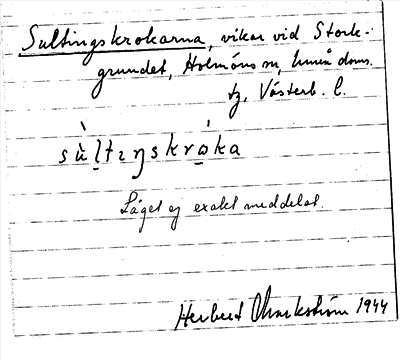 Sultingskrokarna, vikar vid Stork-
grundet, Holmöns sn, Umeå doms.
tg, Västerb. l.
sùltıŋskròka
Läget ej exakt meddelat.
Herbert Markström 1944